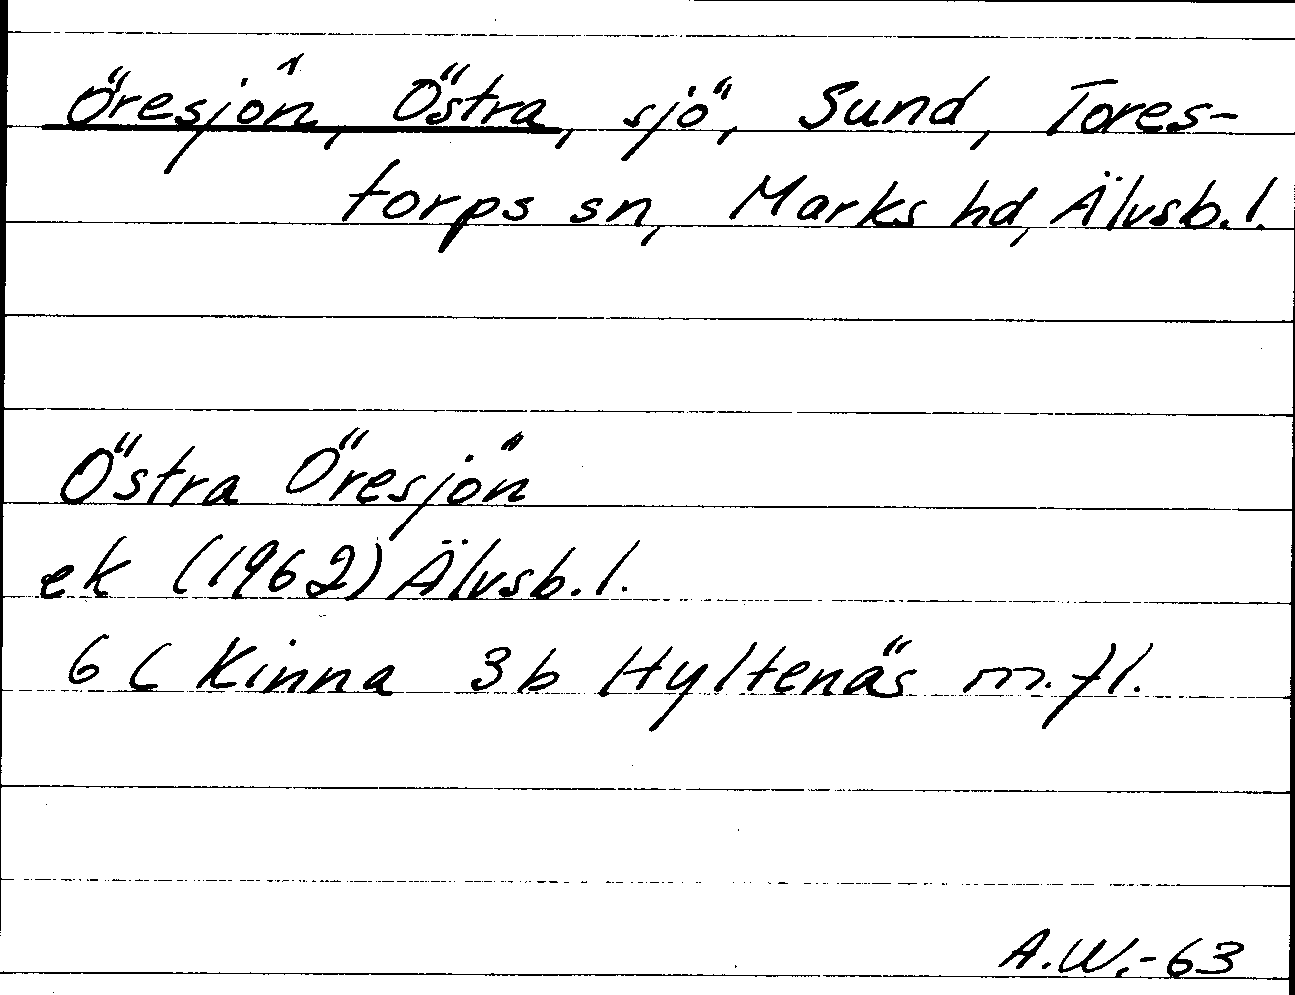 Öresjön, Östra, sjö, Sund, Tores-
torps sn, Marks hd, Älvsb. l.
Östra Öresjön
ek (1962) Älvsb. l.
6 C Kinna 3b Hyltenäs m. fl.
A. W. -63